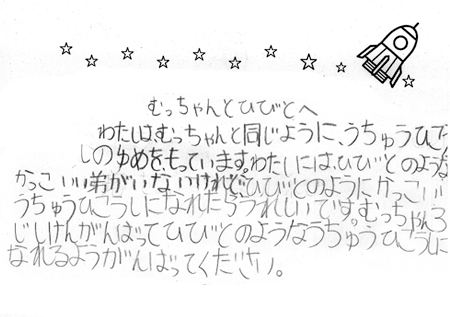 むっちゃんとひびとへ
わたしはむっちゃんと同じように、うちゅうひこ
しのゆめをもっています。わたしには、ひびとのような
かっこいい弟がいないけれど、ひびとのようにかっこいい
うちゅうひこうしになれたらうれしいです。むっちゃんろ
じしけんがんばってひびとのようなうちゅうひこうしに
なれるようがんばってください。